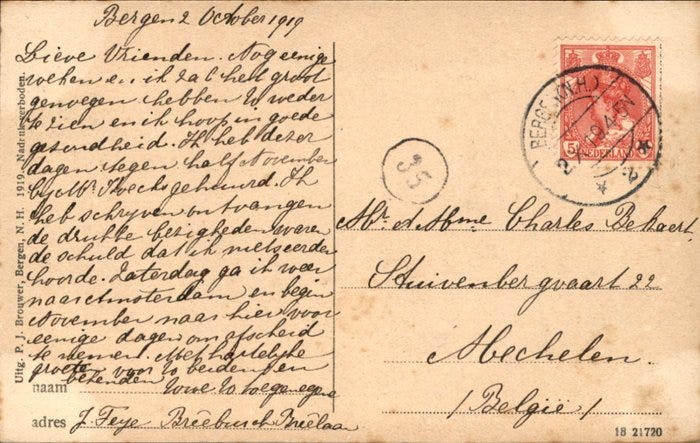 Bergen 2 October 1919
Lieve Vrienden. Nog eenige
weken en ik zal het groot
genoegen hebben U weder
te zien en ik hoop in goede
gezondheid. Ik heb dezer
dagen tegen half November
by Mr. gehuurd. Ik
heb schryven ontvangen
de drukke bezigheden waren
de schuld dat ik niets eerder
hoorde. Zaterdag ga ik weer
naar Amsterdam en begin
November naar hier voor
eenige dagen om afscheid
te nemen. Met hartelyke
groeten voor U beiden en
bekenden
Uwe U toegenegene
naam
adres J. Feye Breêbursch Breêlaan
Uitg. P. J. Brouwer, Bergen, N. H. 1919. Nadruk verboden.
35
BERGEN (N.H.)
2.X.19.4-5N
5
NEDERLAND
Mr. et Mme Charles Bekaert
Stuivenbergvaart 22
Mechelen.
/België/
18 21720